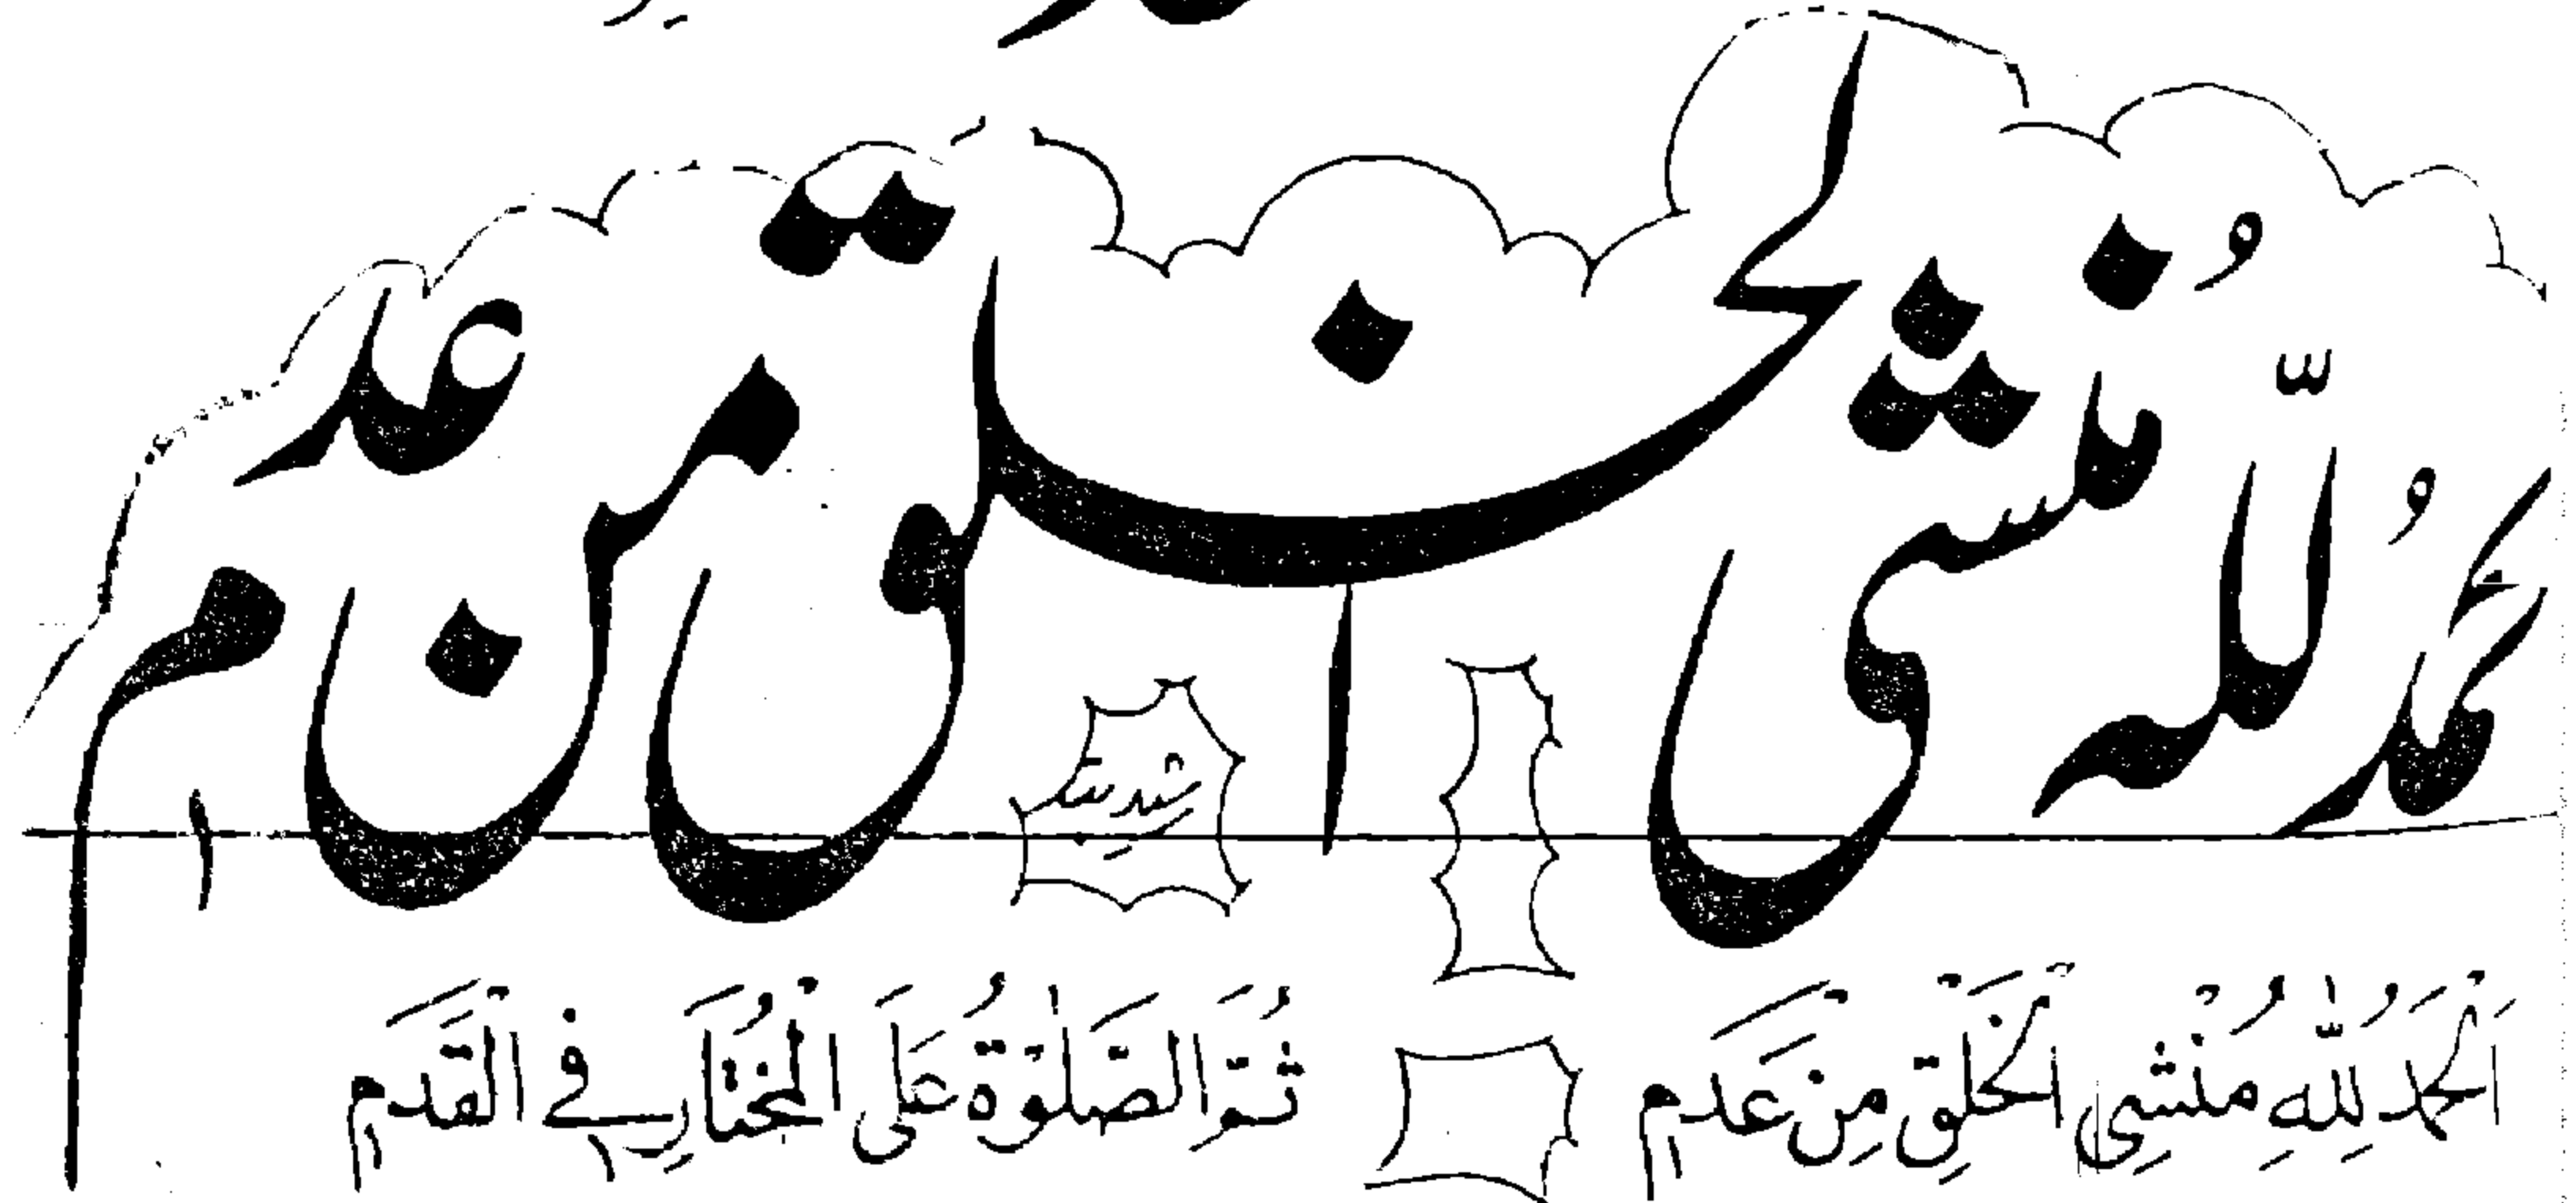 الحمد لله منشئ الخلق من عدم
اَلْحَمْدُ لِلّٰهِ مُنْشِی الْخَلْقِ مِنْ عَدَمٍ ثُمَّ الصَّلٰوۃُ عَلَی الْمُخْتَارِ فِی الْقَدَمِ